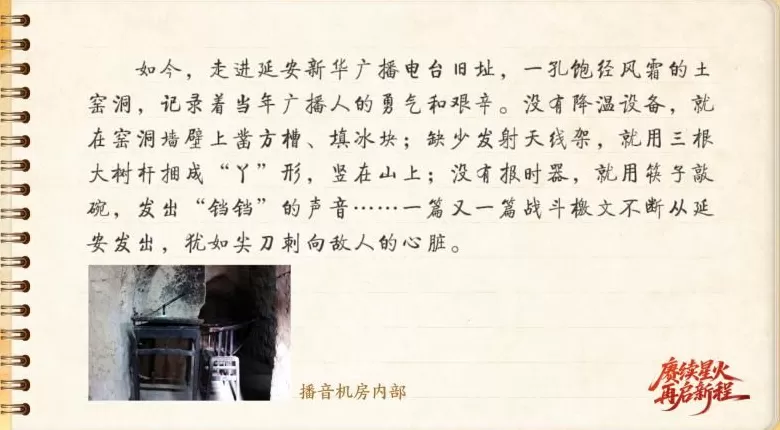 如今，走进延安新华广播电台旧址，一孔饱经风霜的土
窑洞，记录着当年广播人的勇气和艰辛。没有降温设备，就
在窑洞墙壁上凿方槽、填冰块；缺少发射天线架，就用三根
大树杆捆成“丫”形，竖在山上；没有报时器，就用筷子敲
碗，发出“铛铛”的声音……一篇又一篇战斗檄文不断从延
安发出，犹如尖刀刺向敌人的心脏。
播音机房内部
赓续星火
再启新程